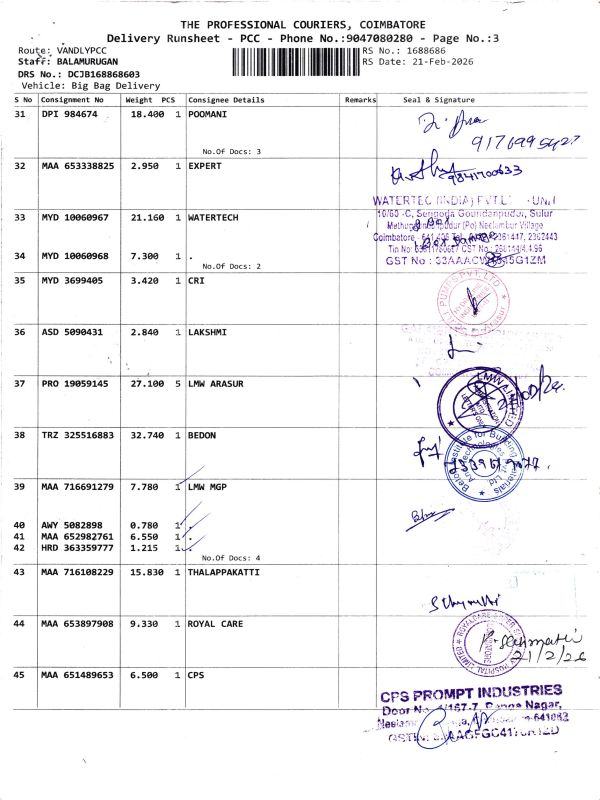 THE PROFESSIONAL COURIERS, COIMBATORE
Delivery Runsheet - PCC - Phone No.:9047080280 - Page No.:3
Route: VANDLYPCC
RS No.: 1688686
Staff: BALAMURUGAN
RS Date: 21-Feb-2026
DRS No.: DCJB168868603
Vehicle: Big Bag Delivery
S No Consignment No Weight PCS Consignee Details Remarks Seal & Signature
31 DPI 984674 18.400 1 POOMANI
No.Of Docs: 3
9176995427
32 MAA 653338825 2.950 1 EXPERT
9841700633
WATERTEC (INDIA) PVT.LT - UNI
33 MYD 10060967 21.160 1 WATERTECH
10/60 -C, Sengoda Goundanpudur, Sulur
Neelambur Village
Coimbatore
34 MYD 10060968 7.300 1 .
GST No :
No.Of Docs: 2
35 MYD 3699405 3.420 1 CRI
PUMPS PVT. LTD
36 ASD 5090431 2.840 1 LAKSHMI
37 PRO 19059145 27.100 5 LMW ARASUR
LMW LIMITED
38 TRZ 325516883 32.740 1 BEDON
Institute for Building Materials
And Technologies
39 MAA 716691279 7.780 1 LMW MGP
40 AWY 5082898 0.780 1 .
41 MAA 652982761 6.550 1 .
42 HRD 363359777 1.215 1 .
No.Of Docs: 4
43 MAA 716108229 15.830 1 THALAPPAKATTI
44 MAA 653897908 9.330 1 ROYAL CARE
21/2/26
45 MAA 651489653 6.500 1 CPS
CPS PROMPT INDUSTRIES
Door No. /167-7, Ranga Nagar,
641062